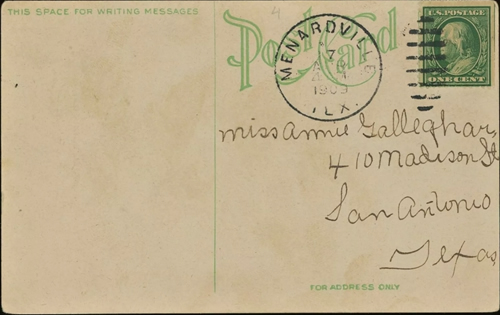 THIS SPACE FOR WRITING MESSAGES
Post Card
MENARDVILLE
7
1909
TEX.
U.S. POSTAGE
ONE CENT
miss Annie Galleghar,
410 Madison St
San Antonio
Texas
FOR ADDRESS ONLY